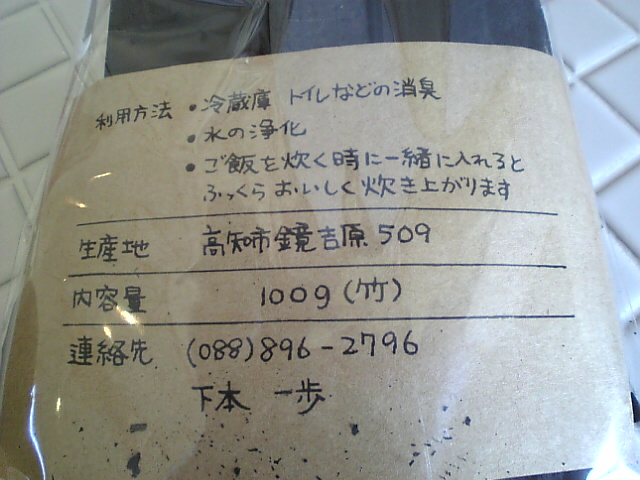 利用方法 • 冷蔵庫 トイレなどの消臭
• 水の浄化
• ご飯を炊く時に一緒に入れると
ふっくらおいしく炊き上がります
生産地 高知市鏡吉原509
内容量 100g(竹)
連絡先 (088)896-2796
下本 一歩